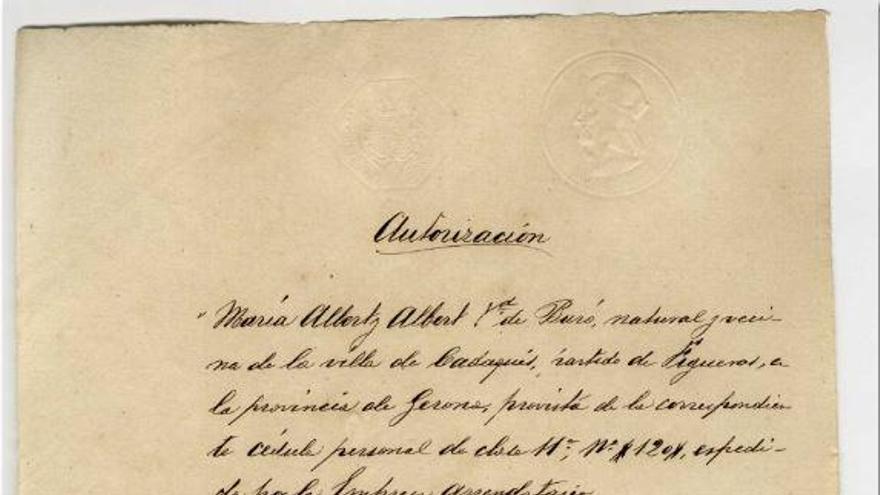 Autorización
" María Albert y Albert Vda de Buró, natural y veci-
na de la villa de Cadaqués, partido de Figueras, e
la provincia de Gerona, provista de la correspondien
te cédula personal de clase 11ª, Nº 1201, espedi-
da por la Empresa Arrendataria